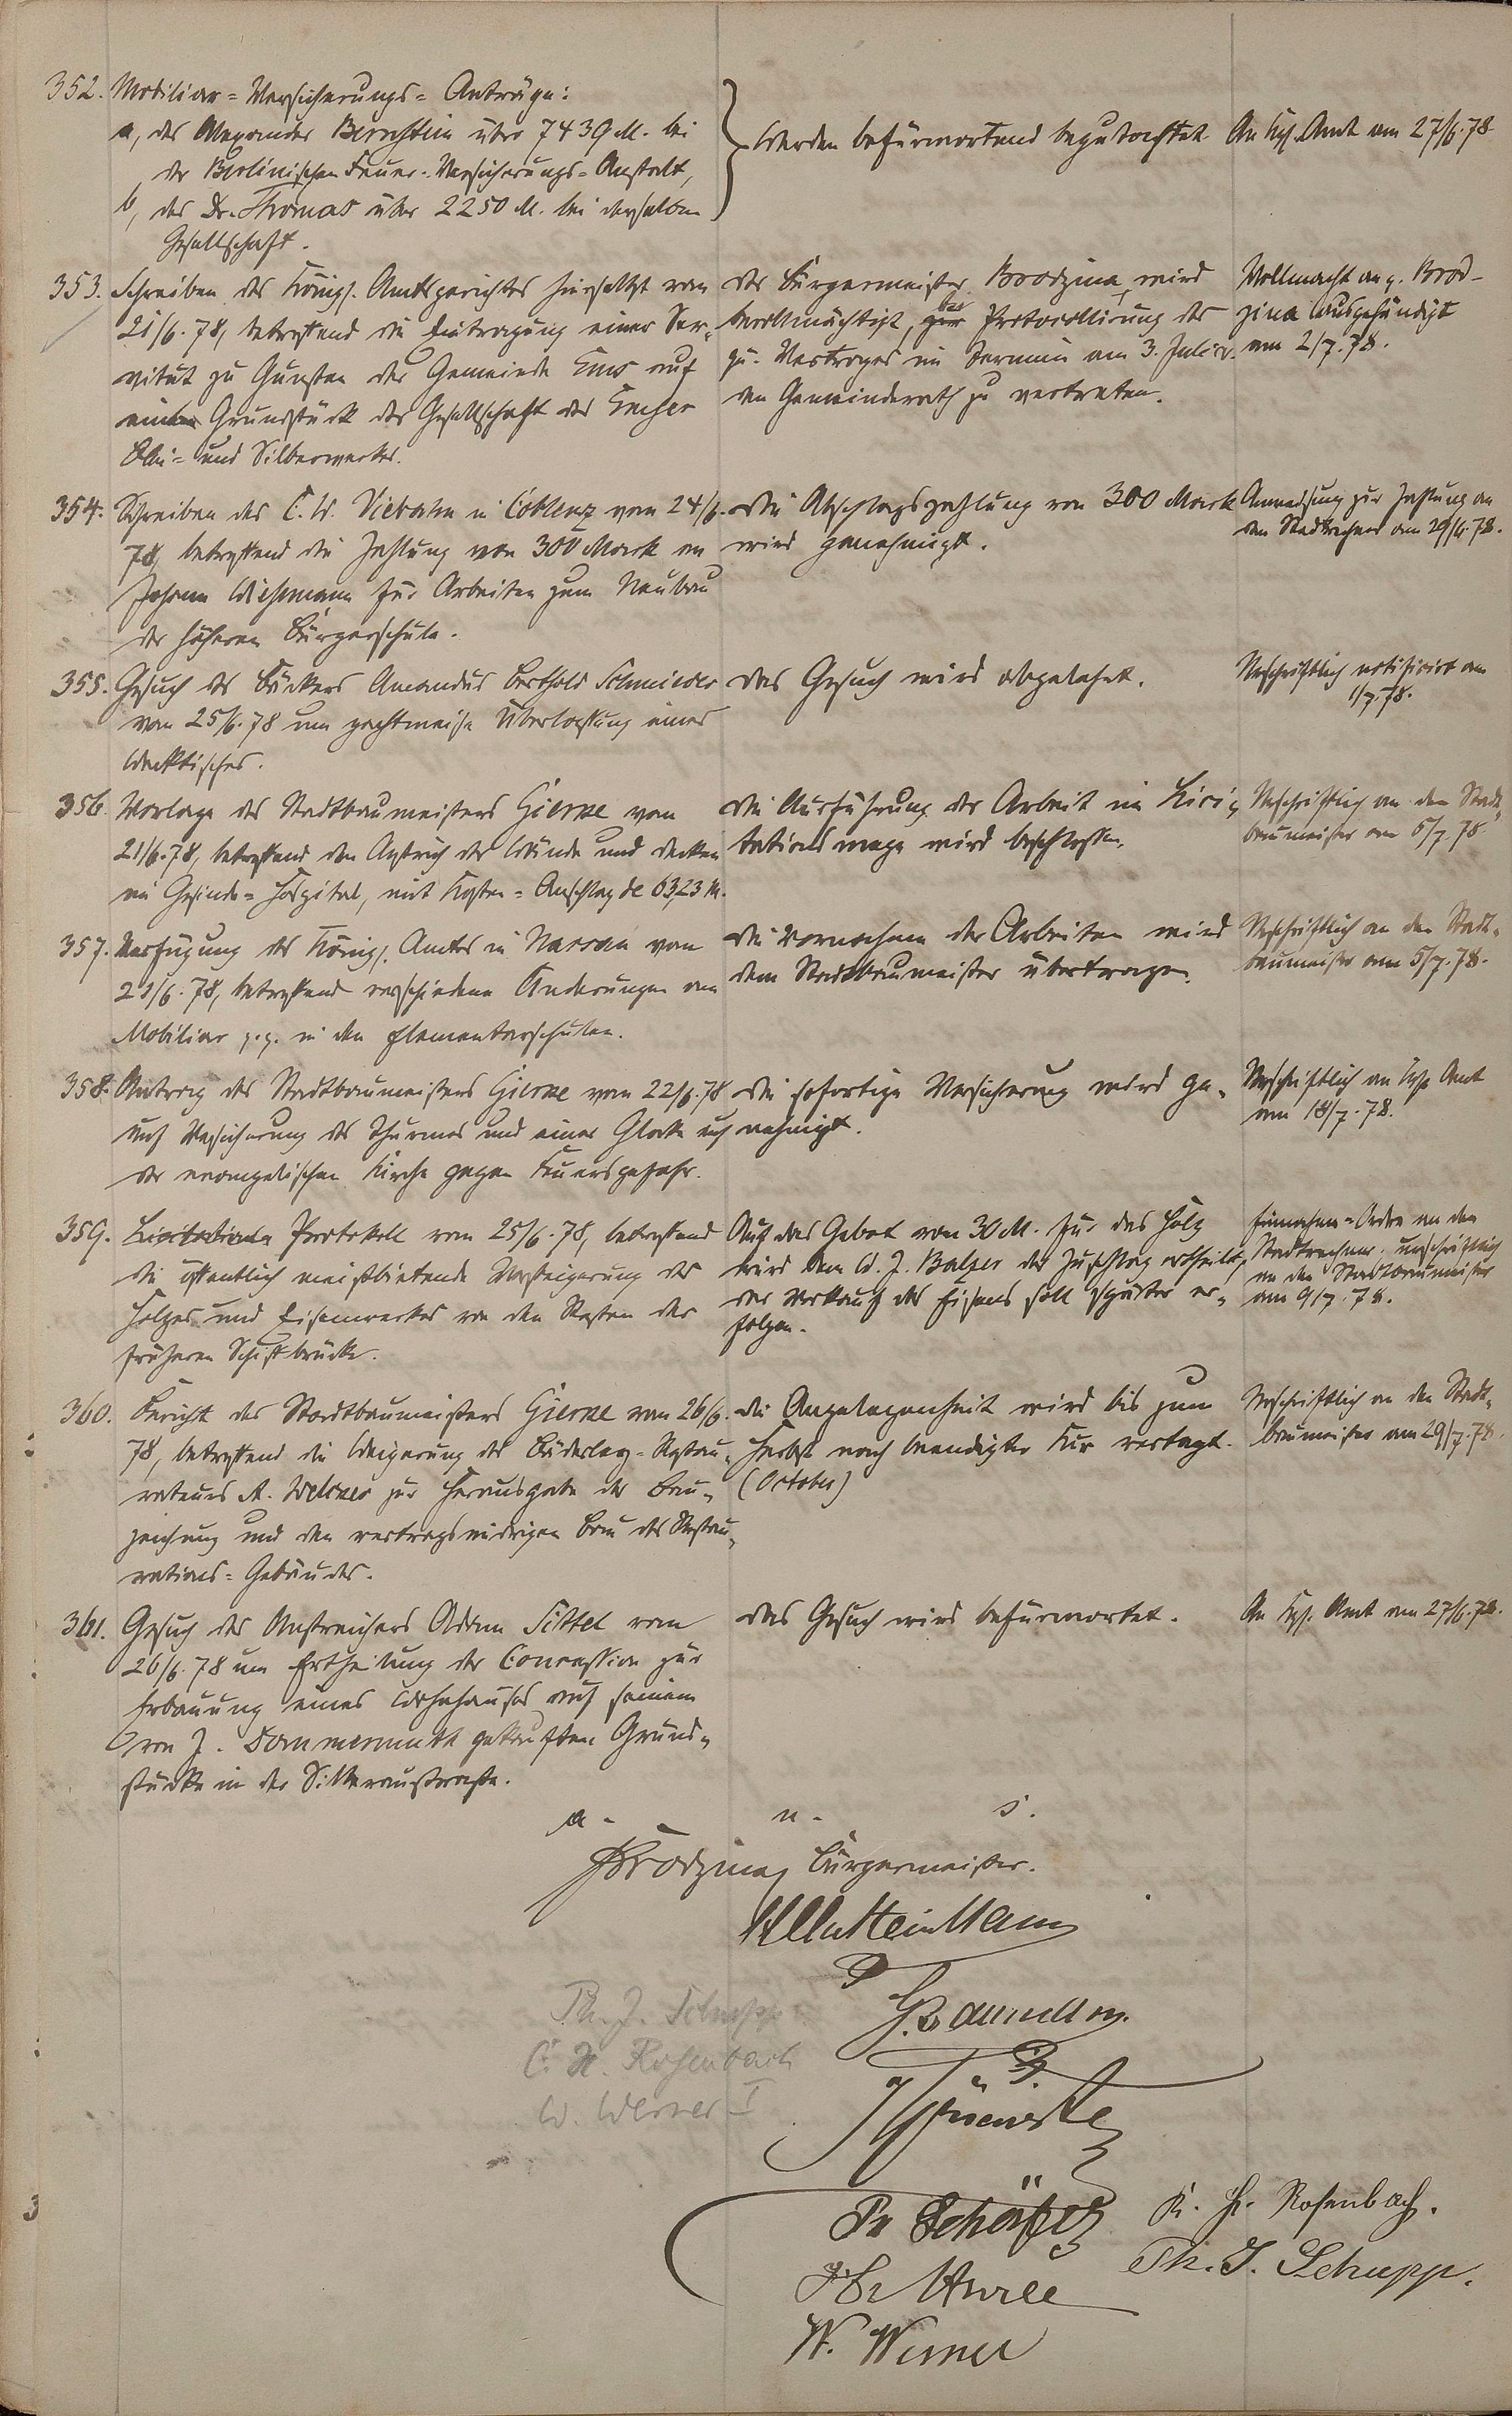 352. Mobiliar=Versicherungs=Anträge:
a, des Alexander Bernstein über 7439 M. bei
der Berlinischen Feuer-Versicherungs=Anstalt,
b, des Dr. Thomas über 2250 M. bei derselben
Gesellschaft.
Werden befürwortend begutachtet
An Kgl. Amt am 27/6.78
353. Schreiben des Königl. Amtsgerichtes hierselbst vom
21/6.78, betreffend die Eintragung einer Ser-
vitut zu Gunsten der Gemeinde Ems auf
Grundstück der Gesellschaft des Emser
Blei= und Silberwerkes.
Der Bürgermeister Brodzina wird
bevollmächtigt, bei Protocollirung des
qu. Vertrages im Termin am 3. Juli cr.
den Gemeinderath zu vertreten.
Vollmacht an H. Brod-
zina ausgehändigt
am 2/7.78.
354. Schreiben des C. W. Viebahn in Coblenz vom 24/6.
78, betreffend die Zahlung von 300 Mark an
Johann Wiesmann für Arbeiten zum Neubau
der höheren Bürgerschule.
Die Abschlagszahlung von 300 Mark
wird genehmigt.
Anweisung zur Zahlung an
den Stadtrechner am 29/6.78.
355. Gesuch des Bäckers Amandus Berthold Schmieder
vom 25/6.78 um pachtweise Überlassung eines
Wecktisches.
Das Gesuch wird abgelehnt.
Urschriftlich notificirt am
1/7.78.
356. Vorlage des Stadtbaumeisters Gierke vom
21/6.78, betreffend den Anstrich der Wände und Decken
im Gesinde=Hospital, mit Kosten=Anschlag de 63,23 M.
Die Ausführung der Arbeit im Lici-
tationswege wird beschlossen.
Urschriftlich an den Stadt-
baumeister am 5/7.78.
357. Verfügung des Königl. Amtes in Nassau vom
21/6.78, betreffend verschiedene Änderungen am
Mobiliar p.p. in den Elementarschulen.
Die Vornahme der Arbeiten wird
dem Stadtbaumeister übertragen.
Urschriftlich an den Stadt-
baumeister am 5/7.78.
358. Antrag des Stadtbaumeisters Gierke vom 22/6.78
auf Versicherung des Thurmes und einer Glocke auf
der evangelischen Kirche gegen Feuersgefahr.
Die sofortige Versicherung wird ge-
nehmigt.
Urschriftlich an Kgl. Amt
am 18/7.78.
359. Licitations Protokoll vom 25/6.78, betreffend
die öffentlich meistbietende Versteigerung des
Holzes und Eisenwerkes von den Resten der
früheren Schiffbrücke.
Auf das Gebot von 30 M. für das Holz
wird dem W. J. Balzer der Zuschlag ertheilt,
der Verkauf des Eisens soll später er-
folgen.
Einnahme=Ordre an den
Stadtrechner. Urschriftlich
an den Stadtbaumeister
am 9/7.78.
360. Bericht des Stadtbaumeisters Gierke vom 26/6.
78, betreffend die Weigerung des Bäderley-Restau-
rateurs A. Welcker zur Herausgabe der Bau-
zeichnung und den vertragswidrigen Bau des Restau-
rations=Gebäudes.
Die Angelegenheit wird bis zum
Herbst nach beendigter Kur vertagt.
(October)
Urschriftlich an den Stadt-
baumeister am 29/7.78.
361. Gesuch des Anstreichers Adam Sittel vom
26/6.78 um Ertheilung der Concession zur
Erbauung eines Wohnhauses auf seinem
von J. Dommermuth gekauften Grund-
stücke in der Silberaustrasse.
Das Gesuch wird befürwortet.
An Kgl. Amt am 27/6.78.
a. u. s.
Brodzina, Bürgermeister.
Ph. J. Schupp
C. H. Rosenbach
W. Werner I
Ph Schäfer
K. H. Rosenbach.
Ph. J. Schupp.
W. Werner